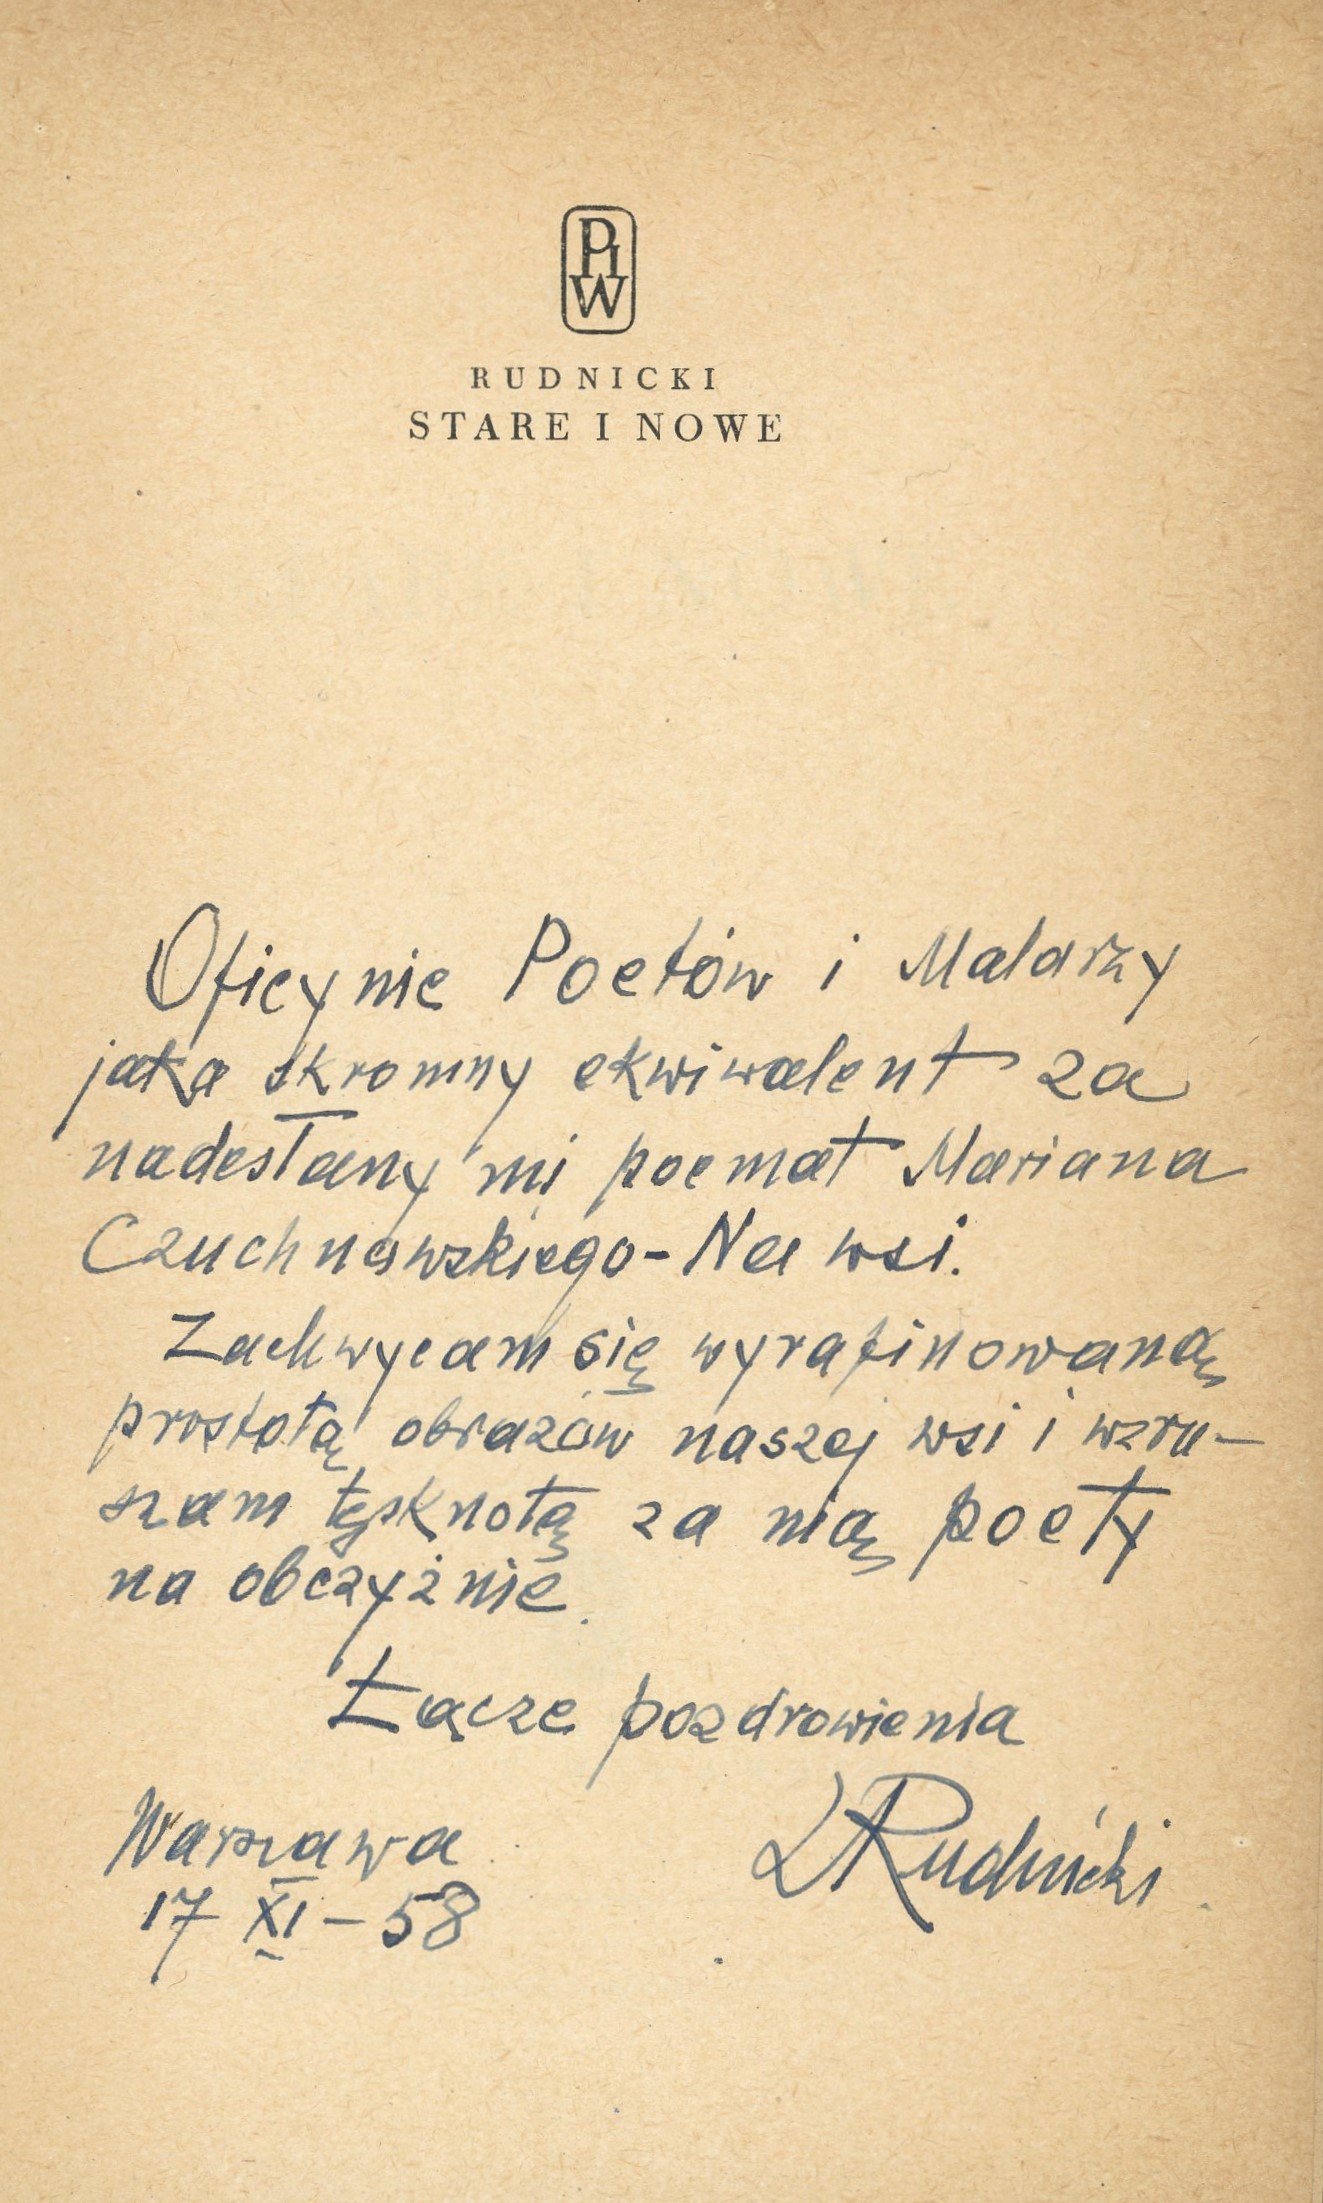 PIW
RUDNICKI
STARE I NOWE
Oficynie Poetów i Malarzy
jako skromny ekwiwalent za
nadesłany mi poemat Mariana
Czuchnowskiego - Na wsi.
Zachwycam się wyrafinowaną
prostotą obrazów naszej wsi i wzru-
szam tęsknotą za nią poety
na obczyźnie.
Łącze pozdrowienia
LRudnicki
Warszawa
17 XI - 58